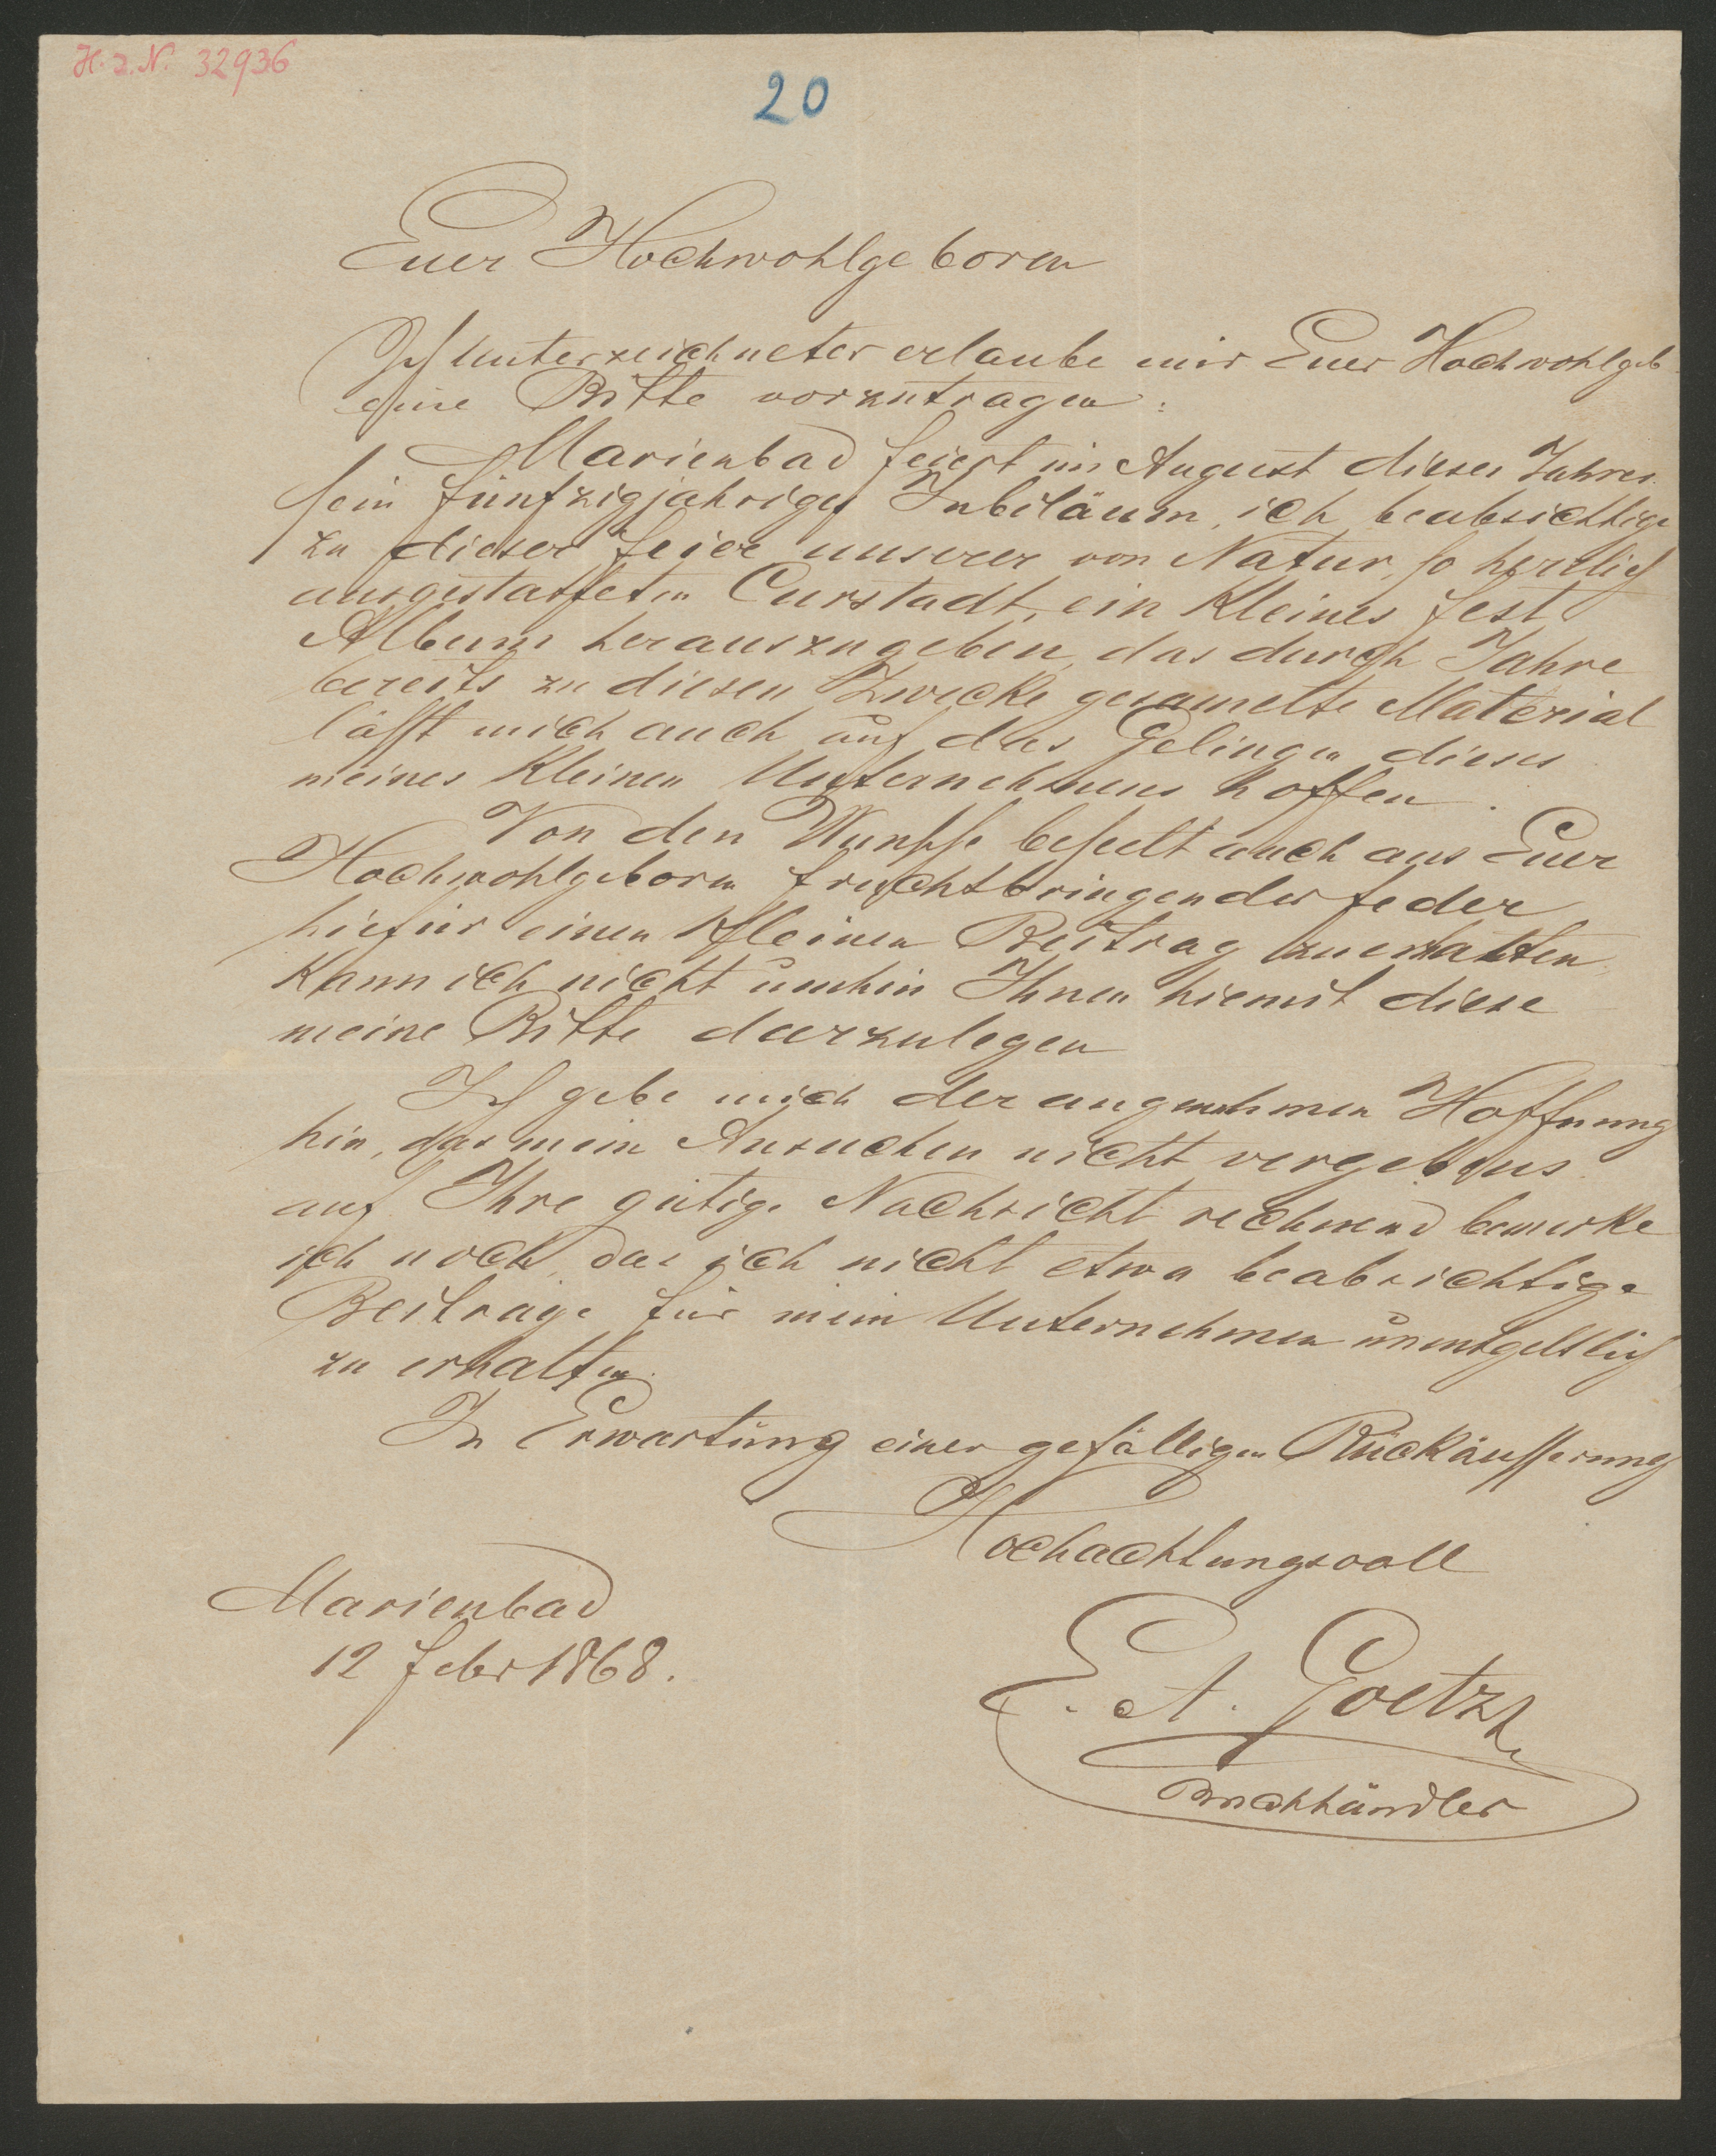 H. I. N. 32936
20
Euer Hochwohlgeboren
Ich Unterzeichneter erlaube mir Euer Hochwohlgeb
eine Bitte vorzutragen:
Marienbad feiert im August dieses Jahres
sein fünfzigjahriges Jubiläum, ich beabsichtige
zu dieser Feier unserer von Natur so herrlich
ausgestatteten Curstadt, ein kleines Fest
Album herauszugeben, das durch Jahre
bereits zu diesen Zwecke gesamelte Material
lässt mich auch auf das Gelingen dieses
meines kleinen Unternehmens hoffen.
Von den Wunsche beseelt auch aus Euer
Hochwohlgeboren fruchtbringender Feder
hiefür einen kleinen Beitrag zu erhalten
kann ich nicht umhin Ihnen hiemit diese
meine Bitte darzulegen
Ich gebe mich der angenehmen Hoffnung
hin, das mein Ansuchen nicht vergebens
auf Ihre gütige Nachsicht rechnend bemerke
ich noch, das ich nicht etwa beabsichtige
Beitrage für mein Unternehmen unentgeltlich
zu erhalten.
In Erwartung einer gefälligen Rückäusserung
Hochachtungsvoll
Marienbad
12 Feber 1868.
E. A. Goetz
Buchhändler